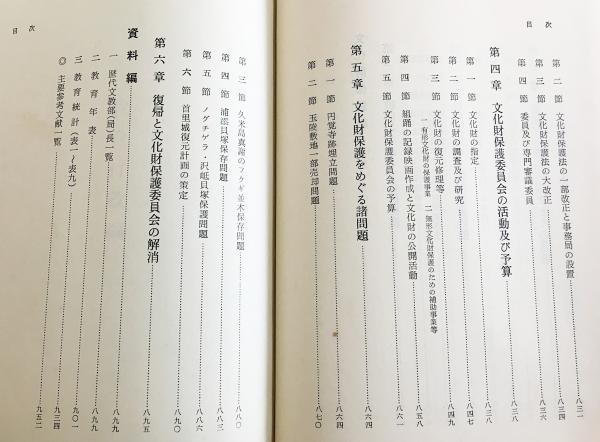 目次
第二節 文化財保護法の一部改正と事務局の設置……八三一
第三節 文化財保護法の大改正……八三六
第四節 委員及び専門審議委員……八三四
第四章 文化財保護委員会の活動及び予算……八三八
第一節 文化財の指定……八三八
第二節 文化財の調査及び研究……八四七
第三節 文化財の復元修理等……八四九
一 有形文化財の保護事業 二 無形文化財保護のための補助事業等
第四節 組踊の記録映画作成と文化財の公開活動……八五八
第五節 文化財保護委員会の予算……八六一
第五章 文化財保護をめぐる諸問題……八六四
第一節 円覚寺跡埋立問題……八六四
第二節 玉陵敷地一部売却問題……八七〇
目次
第三節 久米島真謝のフクギ並木保存問題……八八〇
第四節 浦添貝塚保存問題……八八三
第五節 ノグチゲラ・沢岻貝塚保護問題……八八六
第六節 首里城復元計画の策定……八九〇
第六章 復帰と文化財保護委員会の解消……八九五
資料編
一 歴代文教部(局)長一覧……八九九
二 教育年表……八九九
三 教育統計(表一〜表九)……九〇一
◎ 主要参考文献一覧……九三四
九五二